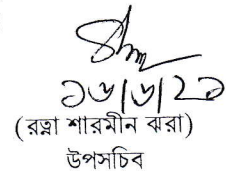 ১৬/৬/২১
(রত্না শারমীন ঝরা)
উপসচিব